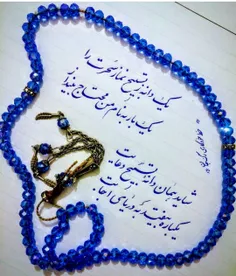 یک دانه ز تسبیح نماز سحرت را
یک بار به نام من محتاج بینداز
شاید همان دانه تسبیح دعایت
یکباره بیفتد به دریای اجابت